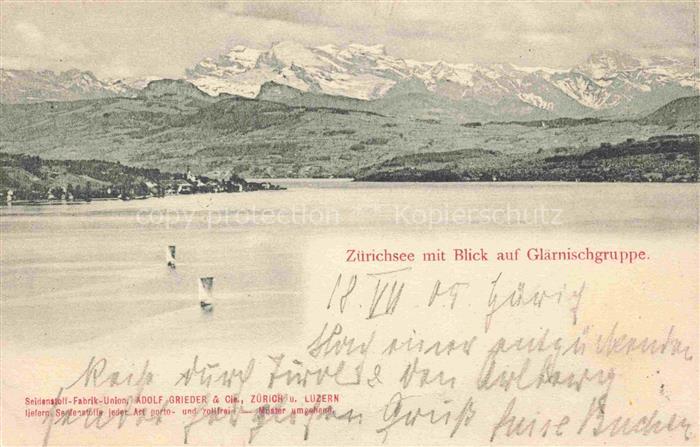 copy protection Kopierschutz
Zürichsee mit Blick auf Glärnischgruppe.
18 VII 05 Zürich
Nach einer entzückenden
Reise durch Tirol & den Arlberg
sendet herzlichen Gruß
Seidenstoff-Fabrik-Union, ADOLF GRIEDER & Cie., ZÜRICH u. LUZERN
liefern Seidenstoffe jeder Art porto- und zollfrei. Muster umgehend.